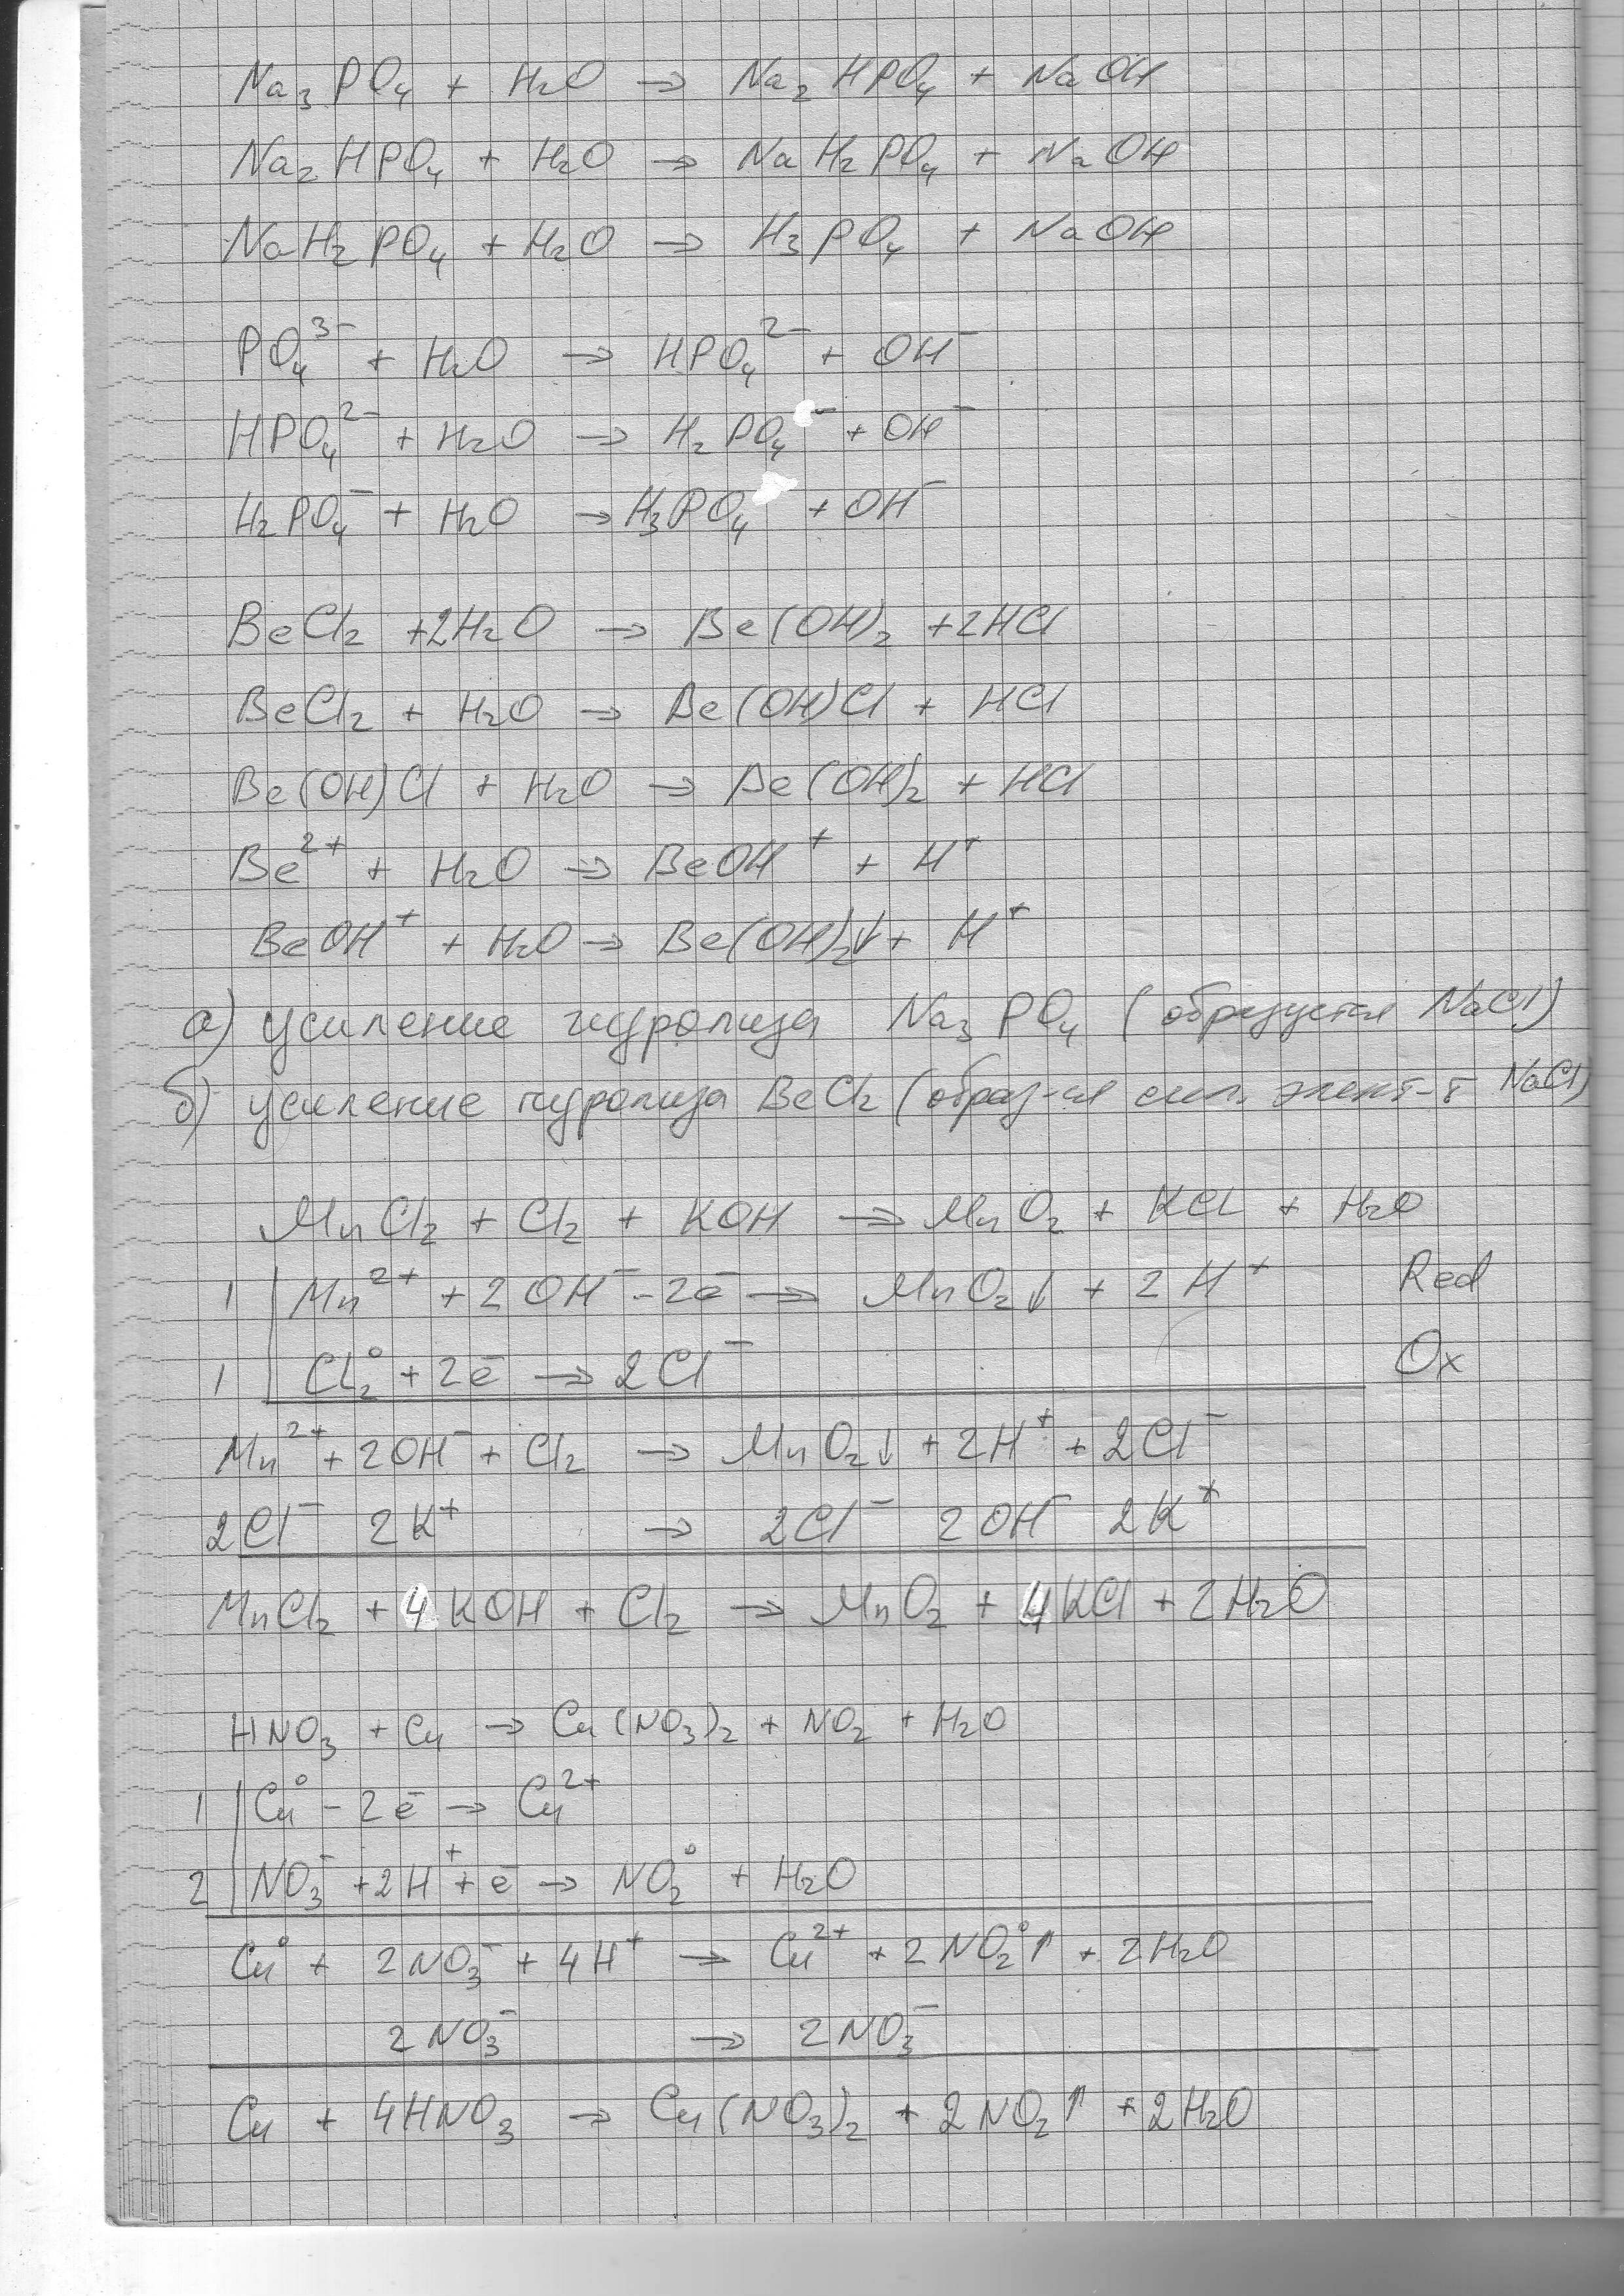 Na₃PO₄ + H₂O → Na₂HPO₄ + NaOH
Na₂HPO₄ + H₂O → NaH₂PO₄ + NaOH
NaH₂PO₄ + H₂O → H₃PO₄ + NaOH
PO₄³⁻ + H₂O → HPO₄²⁻ + OH⁻
HPO₄²⁻ + H₂O → H₂PO₄⁻ + OH⁻
H₂PO₄⁻ + H₂O → H₃PO₄ + OH⁻
BeCl₂ + 2H₂O → Be(OH)₂ + 2HCl
BeCl₂ + H₂O → Be(OH)Cl + HCl
Be(OH)Cl + H₂O → Be(OH)₂ + HCl
Be²⁺ + H₂O → BeOH⁺ + H⁺
BeOH⁺ + H₂O → Be(OH)₂↓ + H⁺
а) усиление гидролиза Na₃PO₄ (образуется NaCl)
б) усиление гидролиза BeCl₂ (образ-ся сил. элект-т NaCl)
MnCl₂ + Cl₂ + KOH → MnO₂ + KCl + H₂O
1 | Mn²⁺ + 2OH⁻ - 2ē → MnO₂↓ + 2H⁺ Red
1 | Cl₂⁰ + 2ē → 2Cl⁻ Ox
Mn²⁺ + 2OH⁻ + Cl₂ → MnO₂↓ + 2H⁺ + 2Cl⁻
2Cl⁻ 2K⁺ → 2Cl⁻ 2OH⁻ 2K⁺
MnCl₂ + 4KOH + Cl₂ → MnO₂ + 4KCl + 2H₂O
HNO₃ + Cu → Cu(NO₃)₂ + NO₂ + H₂O
1 | Cu⁰ - 2ē → Cu²⁺
2 | NO₃⁻ + 2H⁺ + ē → NO₂⁰ + H₂O
Cu⁰ + 2NO₃⁻ + 4H⁺ → Cu²⁺ + 2NO₂⁰↑ + 2H₂O
2NO₃⁻ → 2NO₃⁻
Cu + 4HNO₃ → Cu(NO₃)₂ + 2NO₂↑ + 2H₂O